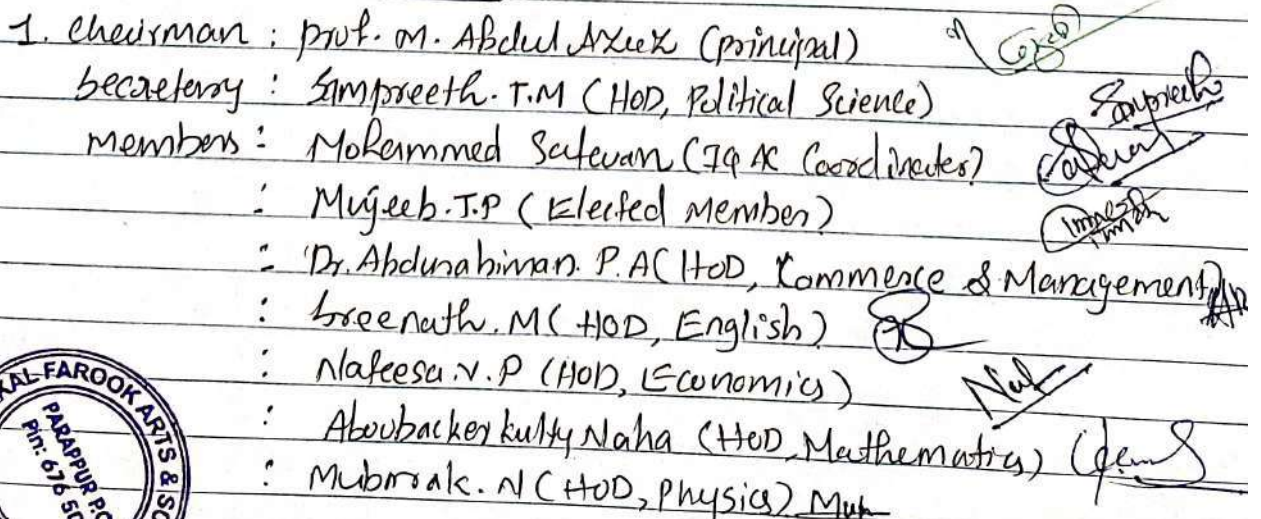 1. Cheirman : Prof. M. Abdul Azeez (principal)
Secretary : Sampreeth. T.M (HOD, Political Science)
Members : Mohammed Safwan (IQAC Coordinator)
: Mujeeb. T.P (Elected Member)
: Dr. Abdurahiman. P.A (HOD, Commerce & Management)
: Sreenath. M (HOD, English)
: Nafeesa. V. P (HOD, Economics)
: Aboubacker kutty Naha (HOD, Mathematics)
: Mubarak. N (HOD, Physics)
Sampreeth
KAL FAROOK ARTS & SC
PARAPPUR P.O
Pin: 676 50